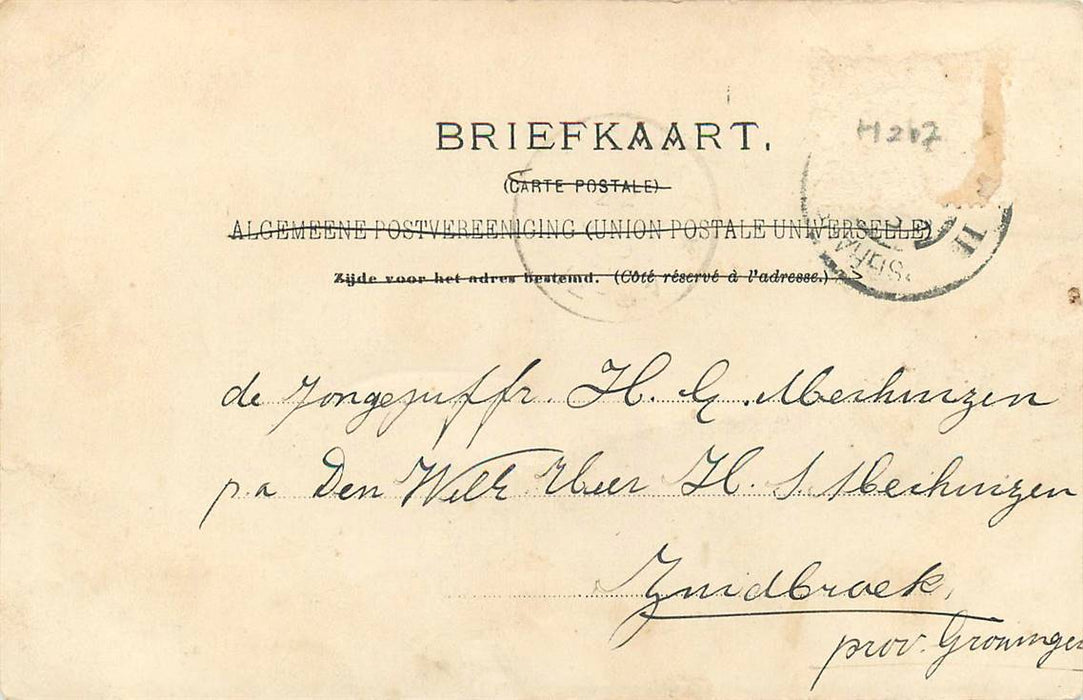 BRIEFKAART.
(CARTE POSTALE)
ALGEMEENE POSTVEREENIGING (UNION POSTALE UNIVERSELLE)
Zijde voor het adres bestemd. (Côté réservé à l'adresse.)
H 267
11
de Jongejuffr. H. G. Meihuizen
p.a Den WelE Heer H. S. Meihuizen
Zuidbroek,
prov. Groningen